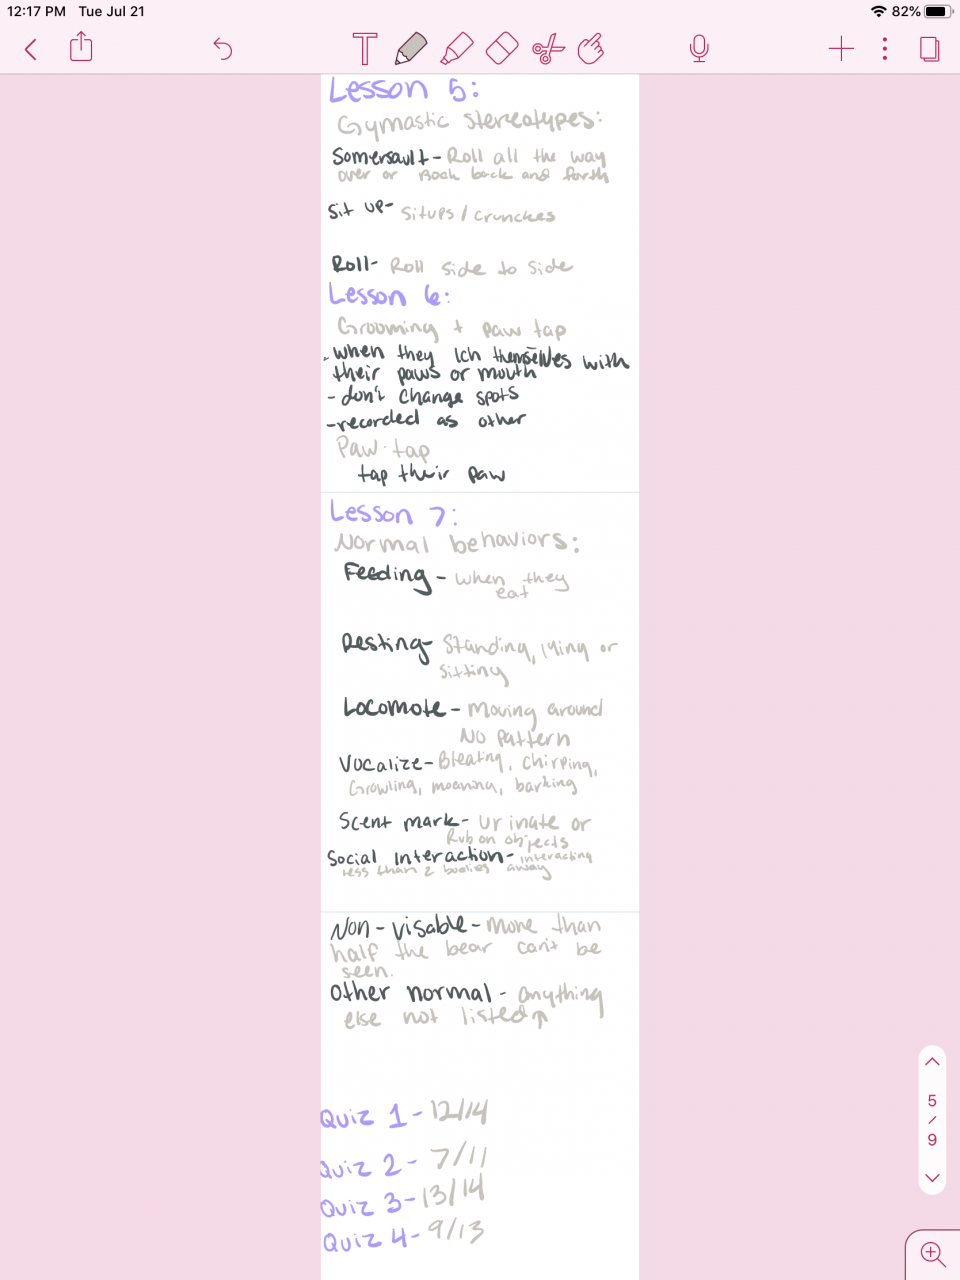 12:17 PM Tue Jul 21
82%
T
Lesson 5:
Gymastic stereotypes:
Somersault - Roll all the way
over or Rock back and forth
Sit up- Situps / crunches
Roll- Roll side to side
Lesson 6:
Grooming + paw tap
- when they Ich themselves with
their paws or mouth
- don't change spots
- recorded as other
Paw tap
tap their paw
Lesson 7:
Normal behaviors:
Feeding - when they
eat
Resting- Standing, lying or
sitting
Locomote - Moving around
No pattern
Vocalize- Bleating, chirping,
Growling, moaning, barking
Scent mark- urinate or
Rub on objects
Social interaction- interacting
less than 2 bodies away
Non-visable - More than
half the bear can't be
seen.
Other normal - anything
else not listed ↑
Quiz 1 - 12/14
Quiz 2 - 7/11
Quiz 3 - 13/14
Quiz 4 - 9/13
5
/
9